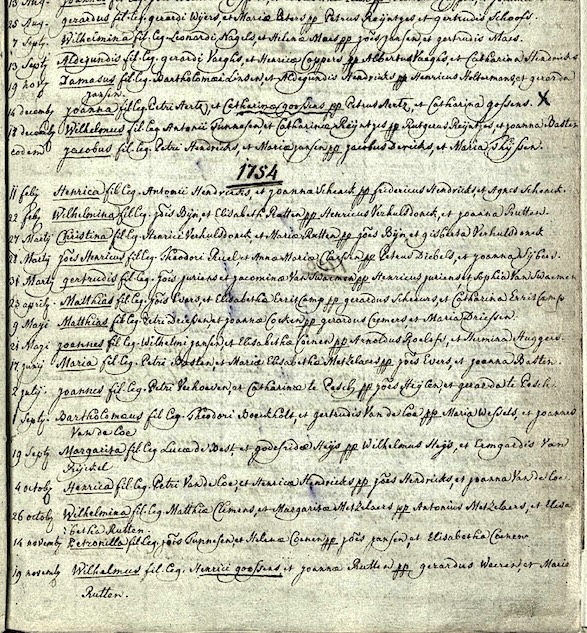 28 Aug. gerardus fil. leg. gerardi Wijers, et Maria Peters pp Petrus Reijntjes, et gertrudis Schoofs.
7 Septb. Wilhelmina fil. Leg. Leonardi Naghs, et Helena Maes pp joes jansen, et gertrudis Maes.
13 Septb Aldegundis fil. leg. gerardi Vaeghs et Henricæ Coppers pp Albertus Vaeghs et Catharina Hendricks
19 novb fil. leg. Bartholomæi Linsen, et Aldegundis Hendricks pp Henricus Holtermans, et gerarda
jansen.
14 decemb joanna fil. leg. Petri Aertz, et Catharinæ goossens pp Petrus Aertz, et Catharina gossens. X
18 decemb Wilhelmus fil. Leg. Antonii Tunnesen et Catharinæ Reijntjes pp Rutgerus Reijntjes et joanna Basten
eodem jacobus fil. leg. Petri Hendricks, et Mariæ jansen pp jacobus Derichs, et Maria Thijssen.
1754
11 feb Henrica fil. Leg. Antonii Hendricks, et joanna Schenck pp federicus Hendricks et Agnes Schenck.
22 feb Wilhelmina fil. leg. jois Bijn et Elisabeth Rutten pp Henricus Verhuldonck, et joanna Rutten.
21 Martij Christina fil. leg. Henrici Verhuldonck et Maria Rutten pp joes Bijn et gisberta Verhuldonck
28 Martij joes Henricus fil. leg. Theodori Ruel et Anna Maria Clarssen pp Petrus Diebels, et joanna Sijbers.
31 Martij gertrudis fil. leg. jois juriens et jacomina Van Swaemen pp Henricus juriens et Sophia Van Swaemen
23 aprilij Matthias fil. leg. jois Evers, et Elisabetha Erricamp pp gerardus Scheurs, et Catharina Erricamp
9 Maij Matthias fil. leg. Petri Driessen, et joanna Coenen pp gerardus Clemens et Maria Driessen.
21 Maij joannes fil. leg. Wilhelmi jansen, et Elisabetha Coenen pp Arnoldus Roelofs, et Hermina Huggers.
17 junij Maria fil. leg. Petri Basten, et Maria Elisabetha Metzelaers pp joes Evers, et joanna Basten.
2 julij joannes fil. leg. Petri Verhoeven, et Catharinæ te Pesch pp joes Heijlen, et gerarda te Pesch.
1 Septb. Bartholomæus fil. leg. Theodori Boeckholt, et gertrudis Van de Loe pp Maria Wessels, et joannes
Van de Loe
19 Septb Margarita fil. Leg. Lucæ de Best et godefridæ Heijs pp Wilhelmus Heijs, et Ermgardis Van
Rijckel
4 octob Henrica fil. leg. Petri Van de Loe, et Henricæ Hendricks pp joes Hendricks, et joanna Van de Loe
26 octob Wilhelmina fil. leg. Matthiæ Clemens, et Margaritæ Metzelaers pp Antonius Metzelaers, et Elisa
betha Rutten.
14 novemb Petronilla fil. leg. jois Tunnesen et Helena Coenen pp joes jansen, et Elisabetha Coenen
19 novemb Wilhelmus fil. leg. Henrici goossens, et joanna Rutten pp gerardus Weeren, et Maria
Rutten.